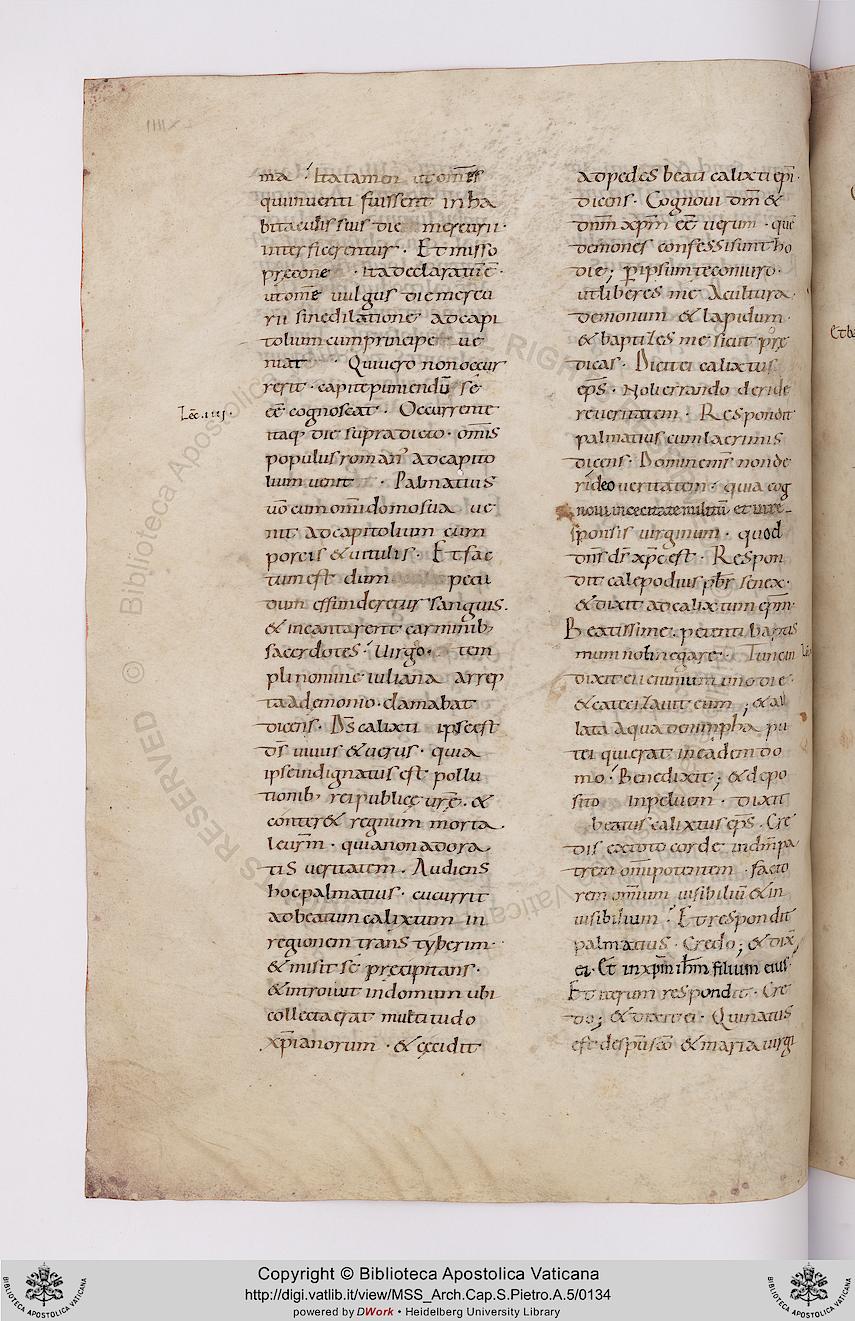 ma. Ita tamen ut om̄es
qui inuenti fuissent in ha
bitaculis suis die mercurii ·
interficerentur · Et misso
precone · ita declaratū ē ·
ut omne uulgus die mercu
rii sine dilatione ad capi
tolium cum principe ue
niat · Qui uero non occur
rerit · capite puniendū se
eē cognoscat · Occurrente
itaq; die supradicto · om̄is
populus roman' ad capito
lium uenit · Palmatius
uō cum om̄i domo sua ue
nit ad capitolium cum
porcis & uitulis · Et fac
tum est dum pecu
dum effunderetur sanguis.
& incantarent carminib;
sacerdotes · Uirgo · tem
pli nomine iuliana arrep
ta a demonio · clamabat
dicens · Dr̄s calixti ipse est
ds̄ uiuus & uerus · quia
ipse indignatus est pollu
tionib; rei publice ur̄e · &
conter& regnum morta
le ur̄m · quia non adora
tis ueritatem · Audiens
hoc palmatius · cucurrit
ad beatum calixtum in
regionem trans tyberim ·
& misit se precipitans ·
& introiuit in domum ubi
collecta erat multitudo
xp̄ianorum · & cecidit
Lēc. iiij ·
ad pedes beati calixti ep̄i ·
dicens · Cognoui dm̄ &
dnm̄ xp̄m eē uerum · quē
demones confessi sunt ho
die; p̄ ipsum te coniuro ·
ut liberes me A cultura
demonum & lapidum ·
& baptizes me sicut pre
dicas · Dicit ei calixtus
ep̄s · Noli errando deride
re ueritatem · Respondit
palmatius cum lacrimis
dicens · Domine mi non de
rideo ueritatem · quia cog
noui in cecitate militū et in re-
sponsis uirginum · quod
dn̄s ds̄ xp̄c est · Respon
dit calepodius pb̄r senex ·
& dixit ad calixtum ep̄m ·
Beatissime · petenti baptis
mum noli negare · Tunc in
dixit ei ieiunium uno die ·
& catecizauit eum ; & al
lata aqua de nimpha pu
tei qui erat in eadem do
mo · Benedixit ; & depo
sito in peluem · dixit
beatus calixtus ep̄s · Cre
dis ex toto corde in dm̄ pa
trem om̄ipotentem · facto
rem om̄ium uisibiliū & in
uisibilium · Et respondit
palmatius · Credo ; & dix̄
ei · Et in xp̄m ihm̄ filium eius ·
Et iterum respondit · Cre
do ; & dixit ei · Qui natus
est de sp̄u scō & maria uirgi
Copyright © Biblioteca Apostolica Vaticana
http://digi.vatlib.it/view/MSS_Arch.Cap.S.Pietro.A.5/0134
powered by DWork • Heidelberg University Library